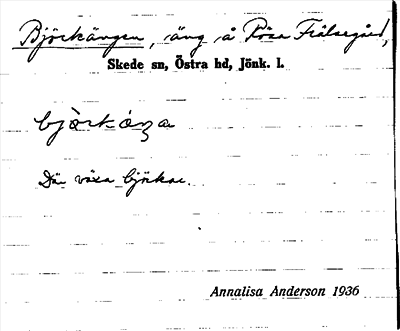 Björkängen, äng å Rösa Frälsegård,
Skede sn, Östra hd, Jönk. l.
Där växa björkar.
Annalisa Anderson 1936